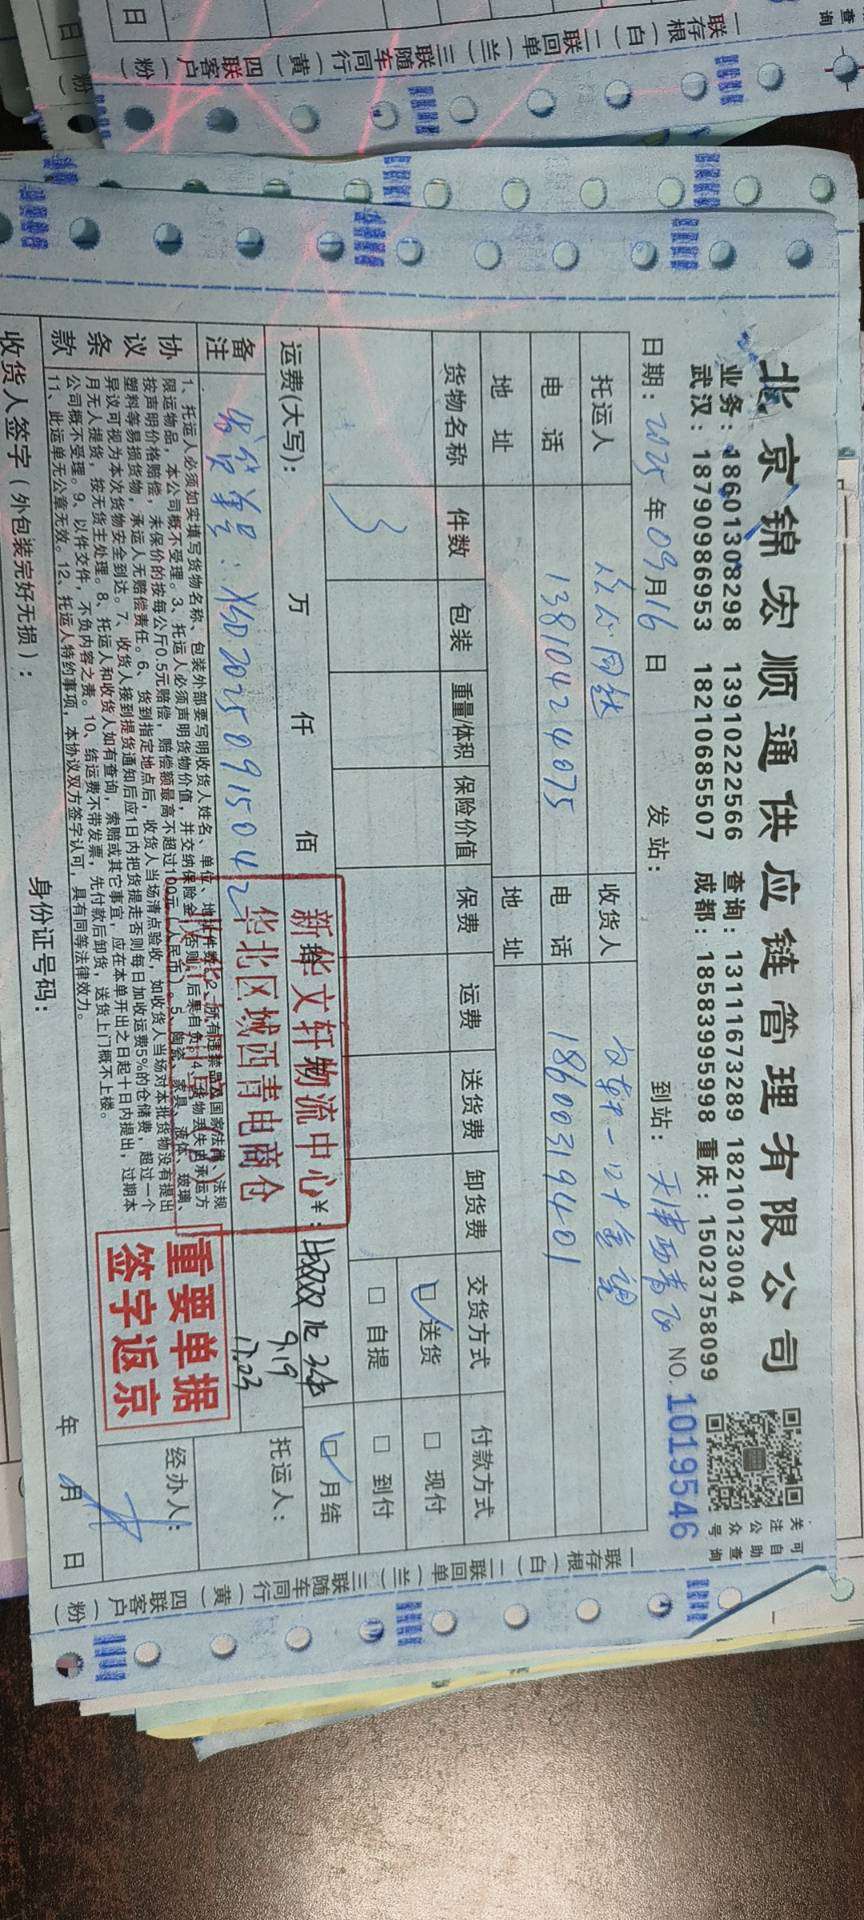 北京锦宏顺通供应链管理有限公司
业务：18601308298 13910222566 查询：13111673289 18210123004
武汉：18790986953 18210685507 成都：18583995998 重庆：15023758099
关注公众号
可自助查询
日期：2025年09月16日 发站： 到站：天津西青 NO.10195­46
托运人 收货人 文轩一
电话 13810424075 电话 18600319401
地址 地址
货物名称 件数 包装 重量/体积 保险价值 保费 运费 送货费 卸货费 交货方式 付款方式
3 送货 现付
自提 到付
运费(大写)： 万 仟 佰 ¥： 月结
备注 发货单号：XSD20250915042
9.19
17.23
托运人：
新华文轩物流中心
华北区域西青电商仓
协议条款
1、托运人必须如实填写货物名称、包装外部要写明收货人姓名、单位、地址件数。2、所有违禁品及国家法律、法规
限运物品，本公司概不受理。3、托运人必须声明货物价值，并交纳保险金，否则，后果自负。4、货物丢失由承运方
按声明价格赔偿，未保价的按每公斤0.5元赔偿，赔偿额最高不超过100元（人民币）。5、陶瓷、家具、液体、玻璃、
塑料等易损货物，承运人无赔偿责任。6、货到指定地点后，收货人当场清点验收，如收货人当场对本批货物没有提出
异议可视为本次货物安全到达。7、收货人接到提货通知后应1日内把货提走否则每日加收运费5%的仓储费，超过一个
月无人提货，按无货主处理。8、托运人和收货人如有查询，索赔或其它事宜，应在本单开出之日起十日内提出，过期本
公司概不受理。9、以件交件，不负内容之责。10、结运费不带发票，先付款后卸货，送货上门概不上楼。
11、此运单无公章无效。12、托运人特约事项，本协议双方签字认可，具有同等法律效力。
重要单据
签字返京
经办人：
收货人签字（外包装完好无损）： 身份证号码： 年 月 日
一联存根（白）二联回单（兰）三联随车同行（黄）四联客户（粉）
一联存根（白）二联回单（兰）三联随车同行（黄）四联客户（粉）
查询
日